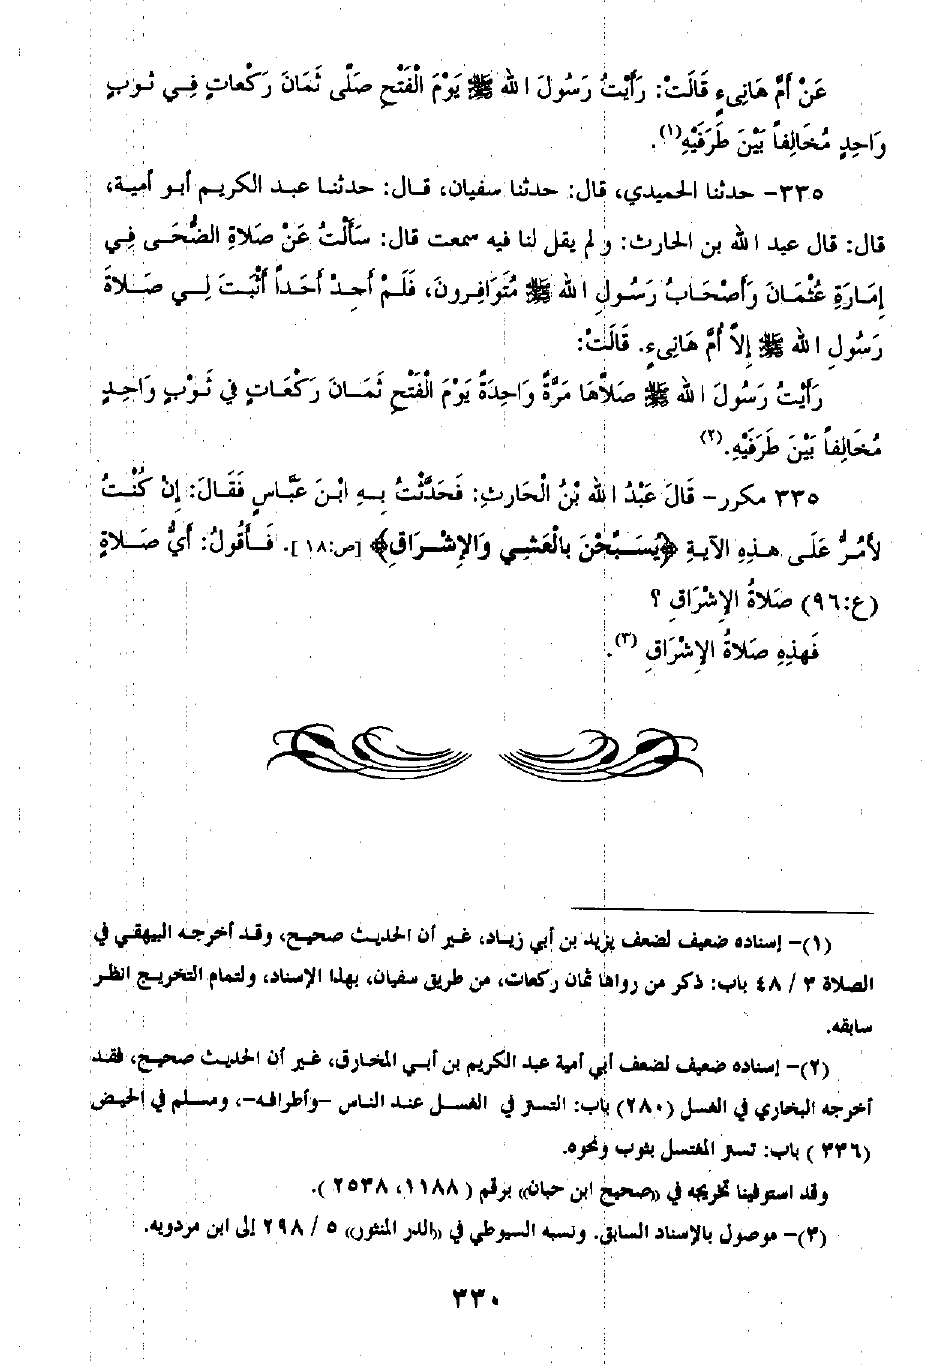 عَنْ أُمِّ هَانِىءٍ قَالَتْ: رَأَيْتُ رَسُولَ الله ﷺ يَوْمَ الْفَتْحِ صَلَّى ثَمَانَ رَكْعاتٍ فِي ثوبٍ
وَاحِدٍ مُخَالِفاً بَيْنَ طَرَفَيْهِ(١).
٣٣٥- حدثنا الحميدي، قال: حدثنا سفيان، قال: حدثنا عبد الكريم أبو أمية،
قال: قال عبد الله بن الحارث: ولم يقل لنا فيه سمعت قال: سَأَلْتُ عَنْ صَلاَةِ الضُّحَى فِي
إِمَارَةِ عُثْمَانَ وَأَصْحَابُ رَسُولِ الله ﷺ مُتَوَافِرونَ، فَلَمْ أَجِدْ أَحَداً أَثْبَتَ لِي صَلاَةَ
رَسُولِ الله ﷺ إِلاَّ أُمَّ هَانِىءٍ. قَالَتْ:
رَأَيْتُ رَسُولَ الله ﷺ صَلاَّهَا مَرَّةً وَاحِدَةً يَوْمَ الْفَتْحِ ثَمَانَ رَكْعَاتٍ في ثَوْبٍ وَاحِدٍ
مُخَالِفاً بَيْنَ طَرَفَيْهِ.(٢)
٣٣٥ مكرر- قَالَ عَبْدُ الله بْنُ الْحَارِثِ: فَحَدَّثْتُ بِهِ ابْنَ عَبَّاسٍ فَقَالَ: إِنْ كُنْتُ
لأَمُرُّ عَلَى هذِهِ الآيةِ ﴿يُسَبِّحْنَ بِالْعَشِي وَالإِشْرَاقِ﴾ [ص:١٨]. فَأَقُولُ: أَيُّ صَلاَةٍ
(ع:٩٦) صَلاَةُ الإِشْرَاقِ ؟
فَهذِهِ صَلاَةُ الإِشْرَاقِ (٣).
(١)- إسناده ضعيف لضعف يزيد بن أبي زياد، غير أن الحديث صحيح، وقد أخرجه البيهقي في
الصلاة ٣ / ٤٨ باب: ذكر من رواها ثمان ركعات، من طريق سفيان، بهذا الإسناد، ولتمام التخريج انظر
سابقه.
(٢)- إسناده ضعيف لضعف أبي أمية عبد الكريم بن أبي المخارق، غير أن الحديث صحيح، فقد
أخرجه البخاري في الغسل (٢٨٠) باب: التستر في الغسل عند الناس -وأطرافه-، ومسلم في الحيض
(٣٣٦) باب: تستر المغتسل بثوب ونحوه.
وقد استوفينا تخريجه في «صحيح ابن حبان» برقم (١١٨٨، ٢٥٣٨).
(٣)- موصول بالإسناد السابق. ونسبه السيوطي في «الدر المنثور» ٥ / ٢٩٨ إلى ابن مردويه.
٣٣٠